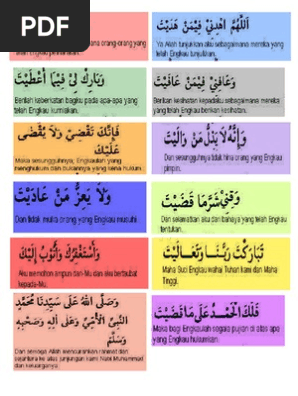 PDF
orang-orang yang
اللَّهُمَّ اهْدِنِي فِيمَنْ هَدَيْتَ
Ya Allah tunjukkan aku sebagaimana mereka yang
telah Engkau tunjukkan.
وَبَارِكْ لِي فِيمَا أَعْطَيْتَ
Berilah keberkatan bagiku pada apa-apa yang
telah Engkau kurniakan.
وَعَافِنِي فِيمَنْ عَافَيْتَ
Berilah kesihatan kepadaku sebagaimana mereka
yang telah Engkau berikan kesihatan.
فَإِنَّكَ تَقْضِي وَلَا يُقْضَى
عَلَيْكَ
Maka sesungguhnya, Engkaulah yang
menghukum dan bukannya yang kena hukum.
وَإِنَّهُ لَا يَذِلُّ مَنْ وَالَيْتَ
Dan sesungguhnya tidak hina orang yang Engkau
pimpin.
وَلَا يَعِزُّ مَنْ عَادَيْتَ
Dan tidak mulia orang yang Engkau musuhi
وَقِنِي شَرَّ مَا قَضَيْتَ
Dan selamatkan aku dari bahaya yang telah Engkau
tentukan.
وَأَسْتَغْفِرُكَ وَأَتُوبُ إِلَيْكَ
Aku memohon ampun dari-Mu dan aku bertaubat
kepada-Mu.
تَبَارَكْتَ رَبَّنَا وَتَعَالَيْتَ
Maha Suci Engkau wahai Tuhan kami dan Maha
Tinggi.
وَصَلَّى اللهُ عَلَى سَيِّدِنَا مُحَمَّدٍ
النَّبِيِّ الْأُمِّيِّ وَعَلَى آلِهِ وَصَحْبِهِ
وَسَلَّمَ
Dan semoga Allah mencurahkan rahmat dan
sejahtera ke atas junjungan kami Nabi Muhammad
dan keluarganya
فَلَكَ الْحَمْدُ عَلَى مَا قَضَيْتَ
Maka bagi Engkaulah segala pujian di atas apa
yang Engkau hukumkan.